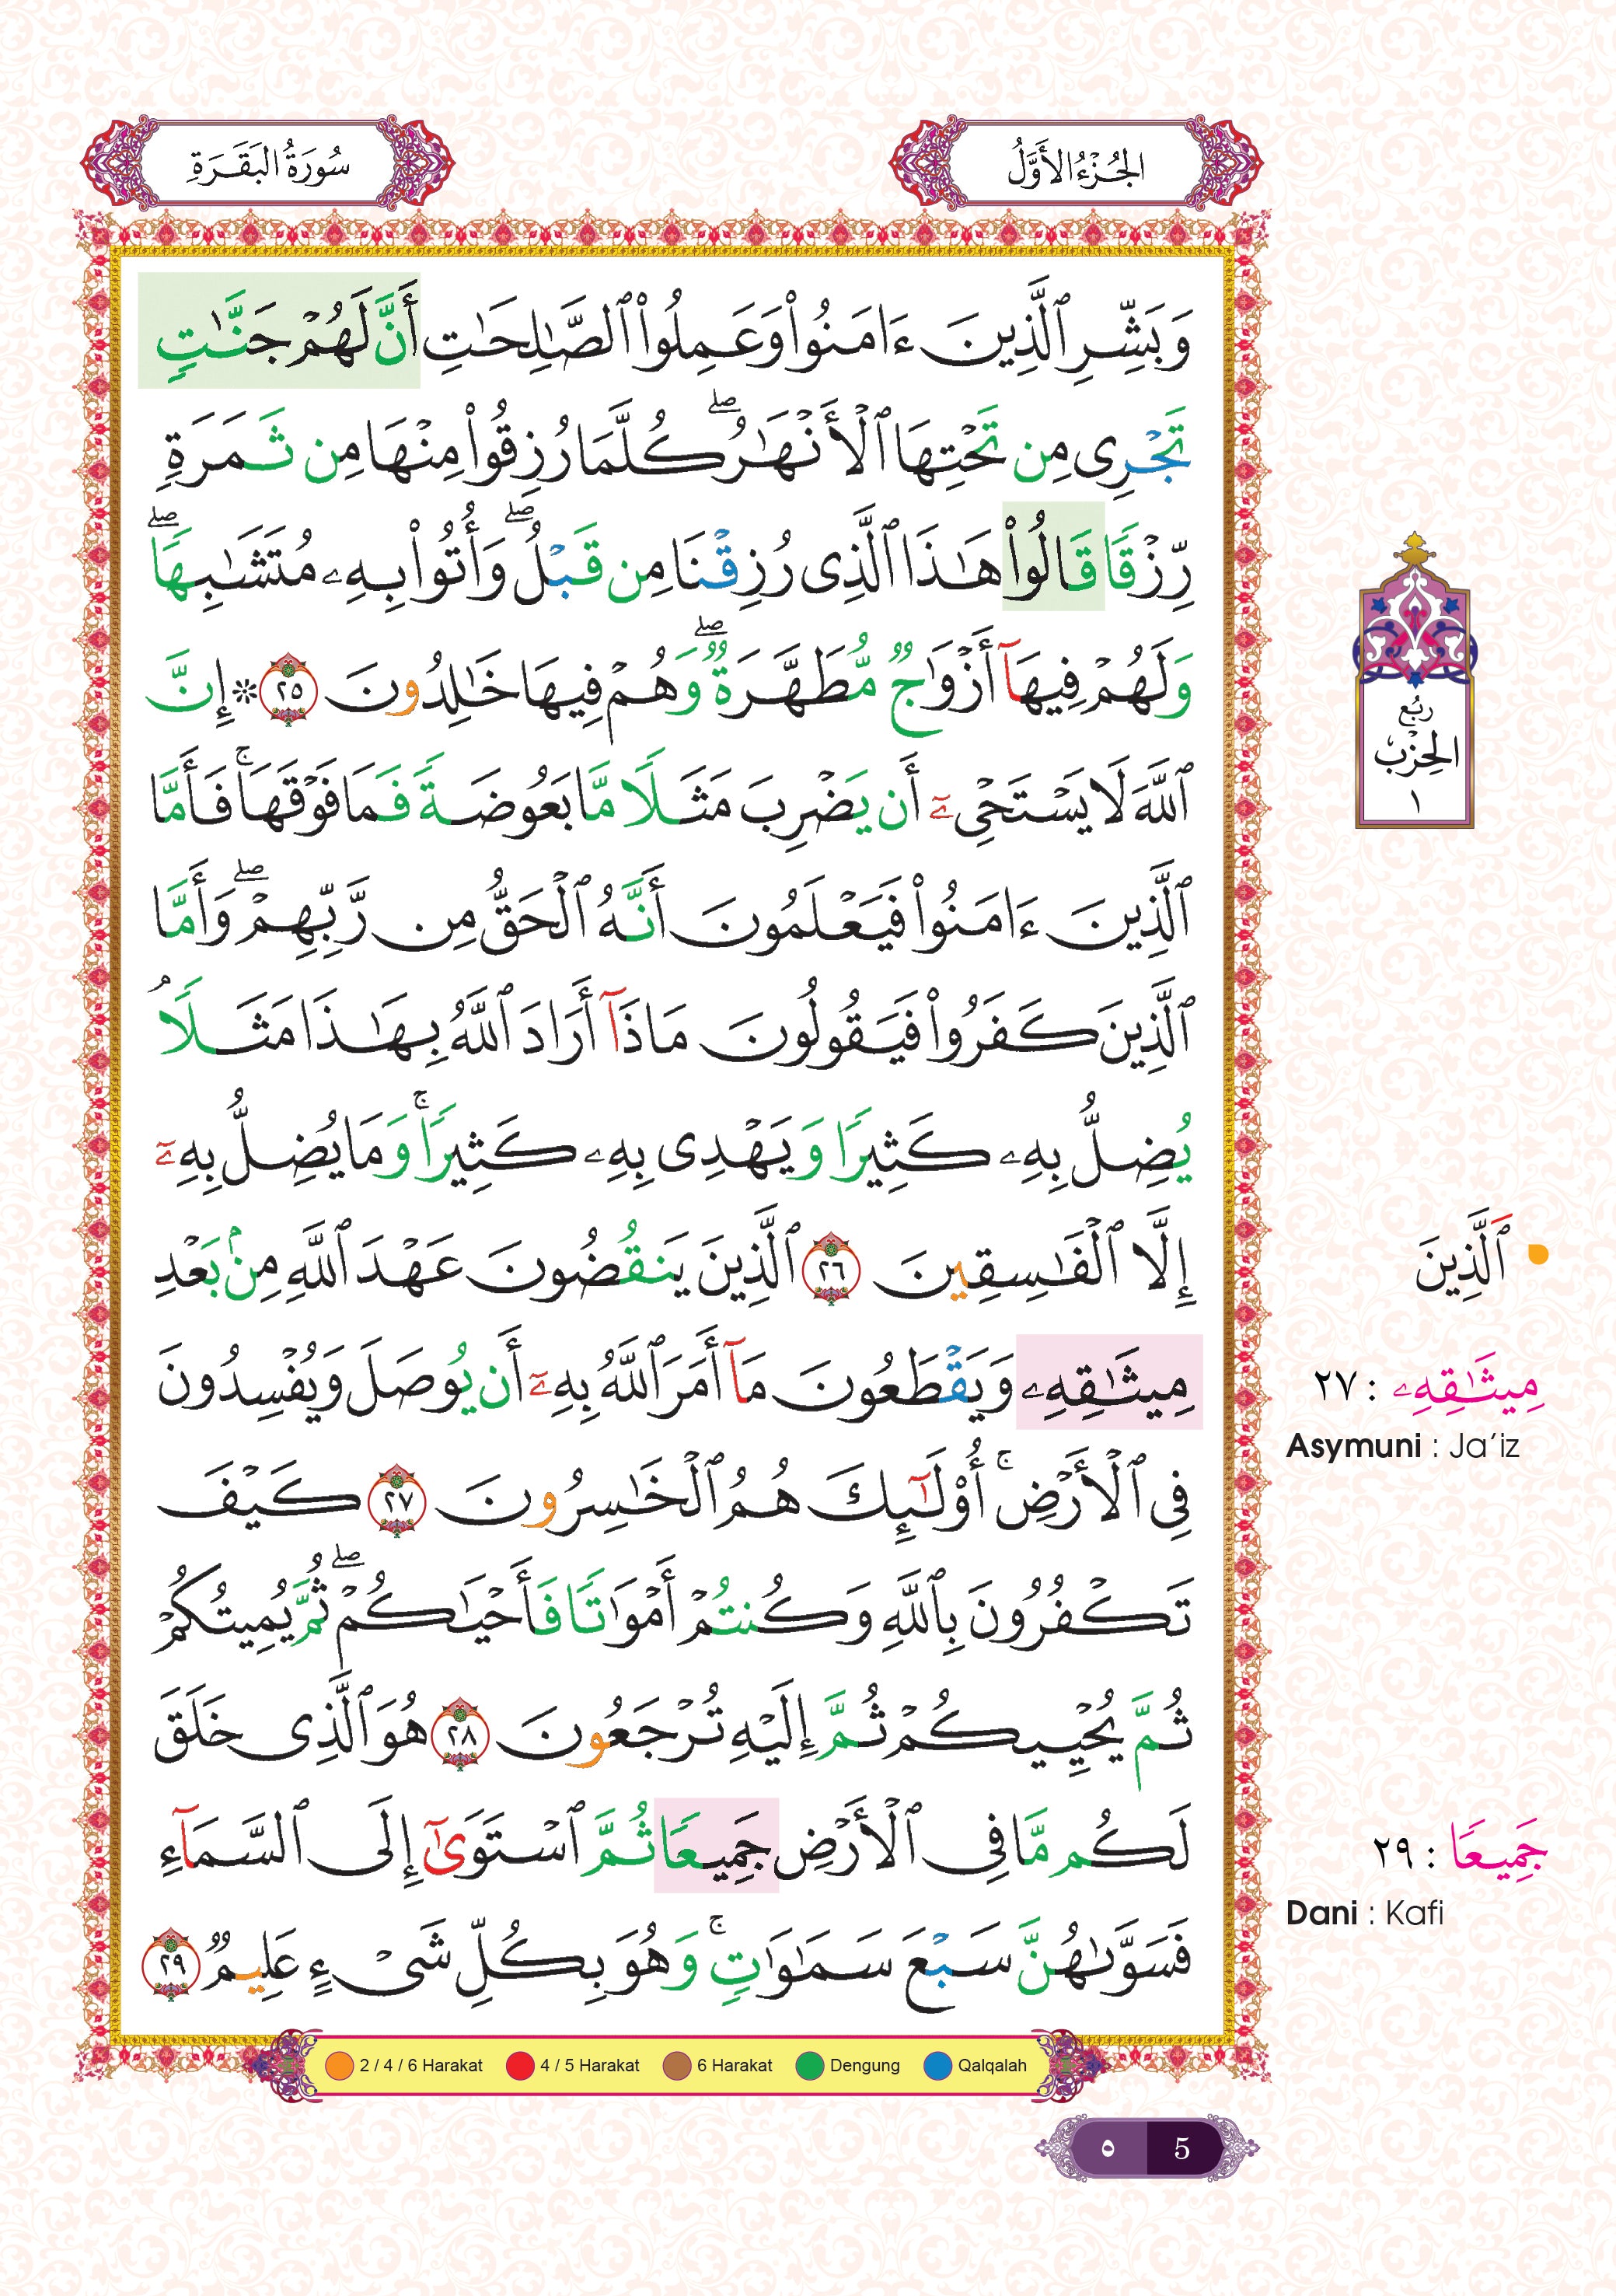 الجُزْءُ الأَوَّلُ
سُورَةُ البَقَرَةِ
وَبَشِّرِ ٱلَّذِينَ ءَامَنُوا۟ وَعَمِلُوا۟ ٱلصَّٰلِحَٰتِ أَنَّ لَهُمْ جَنَّٰتٍ
تَجْرِى مِن تَحْتِهَا ٱلْأَنْهَٰرُ ۖ كُلَّمَا رُزِقُوا۟ مِنْهَا مِن ثَمَرَةٍ
رِّزْقًا قَالُوا۟ هَٰذَا ٱلَّذِى رُزِقْنَا مِن قَبْلُ ۖ وَأُتُوا۟ بِهِۦ مُتَشَٰبِهًا ۖ
وَلَهُمْ فِيهَآ أَزْوَٰجٌ مُّطَهَّرَةٌ ۖ وَهُمْ فِيهَا خَٰلِدُونَ ٢٥ ۞ إِنَّ
ٱللَّهَ لَا يَسْتَحْىِۦٓ أَن يَضْرِبَ مَثَلًا مَّا بَعُوضَةً فَمَا فَوْقَهَا ۚ فَأَمَّا
ٱلَّذِينَ ءَامَنُوا۟ فَيَعْلَمُونَ أَنَّهُ ٱلْحَقُّ مِن رَّبِّهِمْ ۖ وَأَمَّا
ٱلَّذِينَ كَفَرُوا۟ فَيَقُولُونَ مَاذَآ أَرَادَ ٱللَّهُ بِهَٰذَا مَثَلًا ۘ
يُضِلُّ بِهِۦ كَثِيرًا وَيَهْدِى بِهِۦ كَثِيرًا ۚ وَمَا يُضِلُّ بِهِۦٓ
إِلَّا ٱلْفَٰسِقِينَ ٢٦ ٱلَّذِينَ يَنقُضُونَ عَهْدَ ٱللَّهِ مِنۢ بَعْدِ
مِيثَٰقِهِۦ وَيَقْطَعُونَ مَآ أَمَرَ ٱللَّهُ بِهِۦٓ أَن يُوصَلَ وَيُفْسِدُونَ
فِى ٱلْأَرْضِ ۚ أُو۟لَٰٓئِكَ هُمُ ٱلْخَٰسِرُونَ ٢٧ كَيْفَ
تَكْفُرُونَ بِٱللَّهِ وَكُنتُمْ أَمْوَٰتًا فَأَحْيَٰكُمْ ۖ ثُمَّ يُمِيتُكُمْ
ثُمَّ يُحْيِيكُمْ ثُمَّ إِلَيْهِ تُرْجَعُونَ ٢٨ هُوَ ٱلَّذِى خَلَقَ
لَكُم مَّا فِى ٱلْأَرْضِ جَمِيعًا ثُمَّ ٱسْتَوَىٰٓ إِلَى ٱلسَّمَآءِ
فَسَوَّىٰهُنَّ سَبْعَ سَمَٰوَٰتٍ ۚ وَهُوَ بِكُلِّ شَىْءٍ عَلِيمٌ ٢٩
رُبْع
الحِزْبُ
١
ٱلَّذِينَ
مِيثَٰقِهِۦ : ٢٧
Asymuni : Ja'iz
جَمِيعًا : ٢٩
Dani : Kafi
2 / 4 / 6 Harakat 4 / 5 Harakat 6 Harakat Dengung Qalqalah
٥ 5